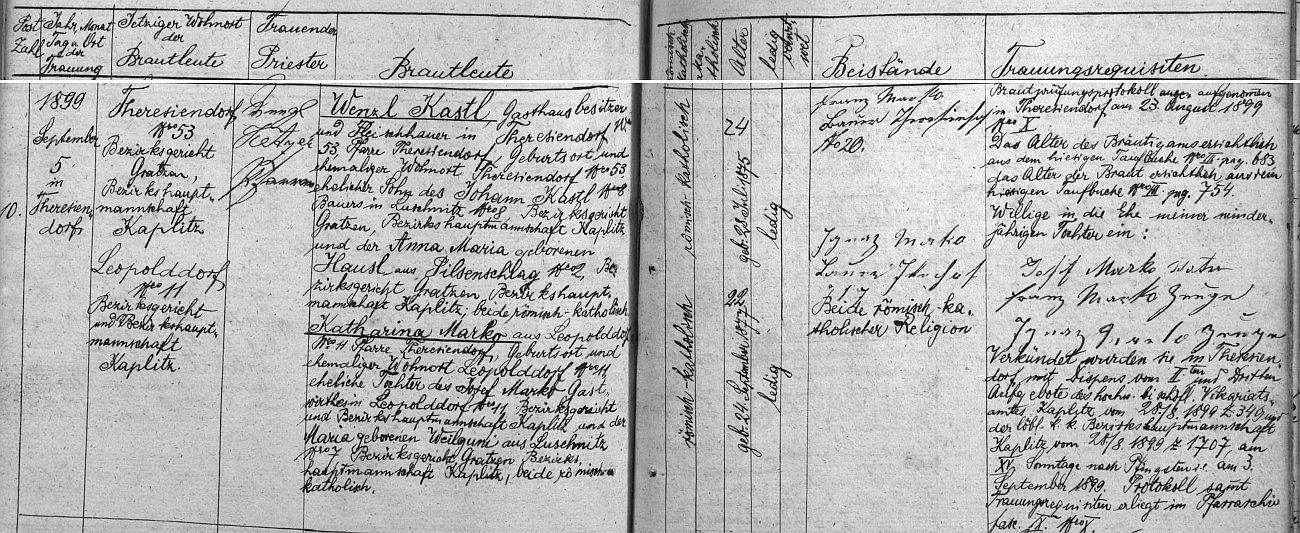 Post
Zahl
Jahr, Monat
Tag u. Ort
der
Trauung
Jetziger Wohnort
der
Brautleute
Trauender
Priester
Brautleute
römisch
katholisch
Alter
ledig
Beistände
Trauungsrequisiten.
10.
1899
September
5
in
Theresien-
dorf
Theresiendorf
Nro 53
Bezirksgericht
Gratzen,
Bezirkshaupt-
mannschaft
Kaplitz
Leopolddorf
Nro 11
Bezirksgericht
und Bezirkshaupt-
mannschaft
Kaplitz.
Wenzl Kastl, Gasthausbesitzer
und Fleischhauer in Theresiendorf Nro
53 Pfarre Theresiendorf, Geburtsort und
ehemaliger Wohnort Theresiendorf Nro 53
ehelicher Sohn des Johann Kastl
Bauers in Luschnitz Nro 8, Bezirksgericht
Gratzen, Bezirkshauptmannschaft Kaplitz
und der Anna Maria geborenen
Hausl aus Pilsenschlag Nro 2, Be-
zirksgericht Gratzen, Bezirkshaupt-
mannschaft Kaplitz, beide römisch-katholisch
Katharina Marko aus Leopolddorf
Nro 11 Pfarre Theresiendorf, Geburtsort und
ehemaliger Wohnort Leopolddorf Nro 11
eheliche Tochter des Josef Marko Gast-
wirths in Leopolddorf Nro 11 Bezirksgericht
und Bezirkshauptmannschaft Kaplitz und der
Maria geborenen Weilguni aus Luschnitz
Nro 7 Bezirksgericht Gratzen Bezirks-
hauptmannschaft Kaplitz, beide römisch-
katholisch.
römisch-katholisch
römisch-katholisch
24
geb. 28. Juli 1875
22
geb. 24. September 1877
ledig
ledig
Franz Marko
Bauer
No 20.
Ignaz Marko
Bauer
Beide römisch-ka-
tholischer Religion
Brautprüfungsprotokoll aufgenomen
in Theresiendorf am 23. August 1899
Nro X
Das Alter des Bräutigams ersichtlich
aus dem hiesigen Taufbuche Nro III pag. 683
das Alter der Braut ersichtlich aus dem
hiesigen Taufbuche Nro III. pag. 754.
Willige in die Ehe meiner minder-
jährigen Tochter ein:
Josef Marko Vater
Franz Marko Zeuge
Ignaz Marko Zeuge
Verkündet wurden sie in Theresien-
dorf mit Dispens vom IIten und Dritten
Aufgebote des hochw. bischöfl. Vikariats-
amtes Kaplitz vom 28/8 1899 Z 349 und
der löbl. k. k. Bezirkshauptmannschaft
Kaplitz vom 28/8. 1899 Z 1707, am
XV. Sonntage nach Pfingsten i.e. am 3.
September 1899. Protokoll samt
Trauungsrequisiten erliegt im Pfarrarchiv
fasc. IX. Nro X.